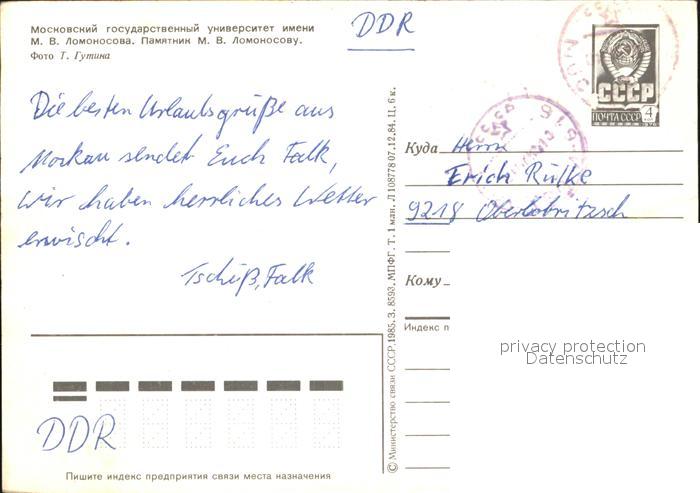 Московский государственный университет имени
М. В. Ломоносова. Памятник М. В. Ломоносову.
Фото Т. Гутина
DDR
СССР
ПОЧТА СССР
4
Die besten Urlaubsgrüße aus
Moskau sendet Euch Falk,
wir haben herrliches Wetter
erwischt.
Tschüß, Falk
Куда Herrn
Erich Rülke
9218 Oberbobritzsch
Кому
Индекс п
privacy protection
Datenschutz
© Министерство связи СССР, 1985. З. 8593. МПФГ. Т. 1 млн. Л 108778 07.12.84. Ц. 6 к.
DDR
Пишите индекс предприятия связи места назначения